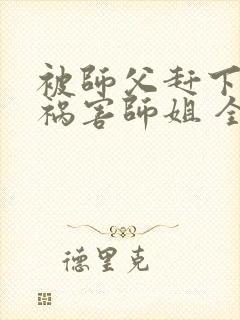 被師父赶下
祸害師姐 全
德里克